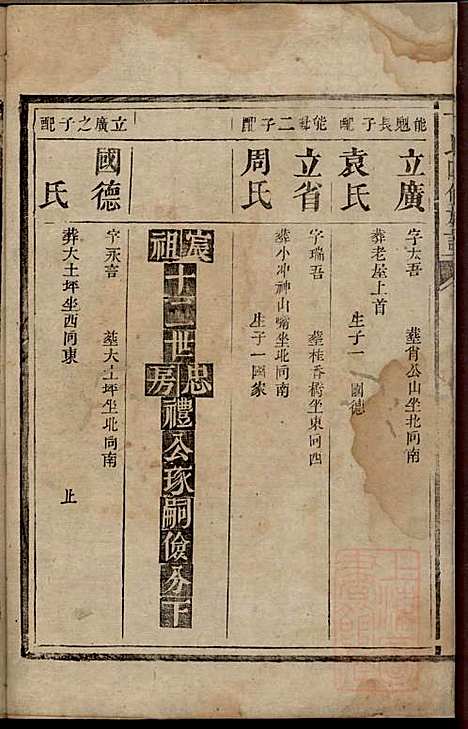 能魁長子配
立廣
字大吾 葬肖公山坐北向南
袁氏
葬老屋上首 生子一 國德
能 二子配
立省
字瑞吾 葬桂香橋坐東向西
周氏
葬小冲神山嘴坐北向南 生子一國家
宸祖十二世忠房禮公琢嗣儉分下
立廣之子配
國德
字永言 葬大土坪坐北向南
氏
葬大土坪坐西向東 止